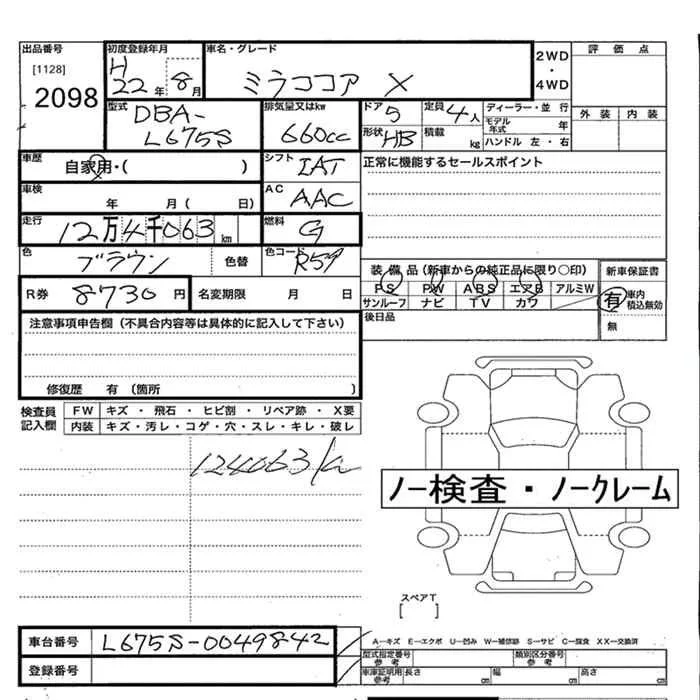 出品番号 初度登録年月 車名・グレード 2WD・4WD 評価点
[1128] H
2098 22年 8月 ミラココア X
外装 内装
型式 DBA-L675S 排気量又はkw 660cc ドア 5 定員 4人 ディーラー・並行
モデル年式 年
形状 HB 積載 kg ハンドル 左・右
車歴 自家用・( ) シフト IAT 正常に機能するセールスポイント
車検 年 月( 日) AC AAC
走行 12万4千063km 燃料 G
色 ブラウン 色替 色コード R59
装備品(新車からの純正品に限り○印) 新車保証書
PS PW ABS エアB アルミW 有 車内積込無効
サンルーフ ナビ TV カワ 無
R券 8730円 名変期限 月 日
後日品
注意事項申告欄(不具合内容等は具体的に記入して下さい)
修復歴 有 (箇所 )
検査員記入欄 FW キズ・飛石・ヒビ割・リペア跡・X要
内装 キズ・汚レ・コゲ・穴・スレ・キレ・破レ
124063km
ノー検査・ノークレーム
スペアT
[ ]
車台番号 L675S-0049842
登録番号
A―キズ E―エクボ U―凹み W―補修跡 S―サビ C―腐食 XX―交換済
型式指定番号 参考 類別区分番号 参考
車庫証明用 参考 長さ cm 幅 cm 高さ cm